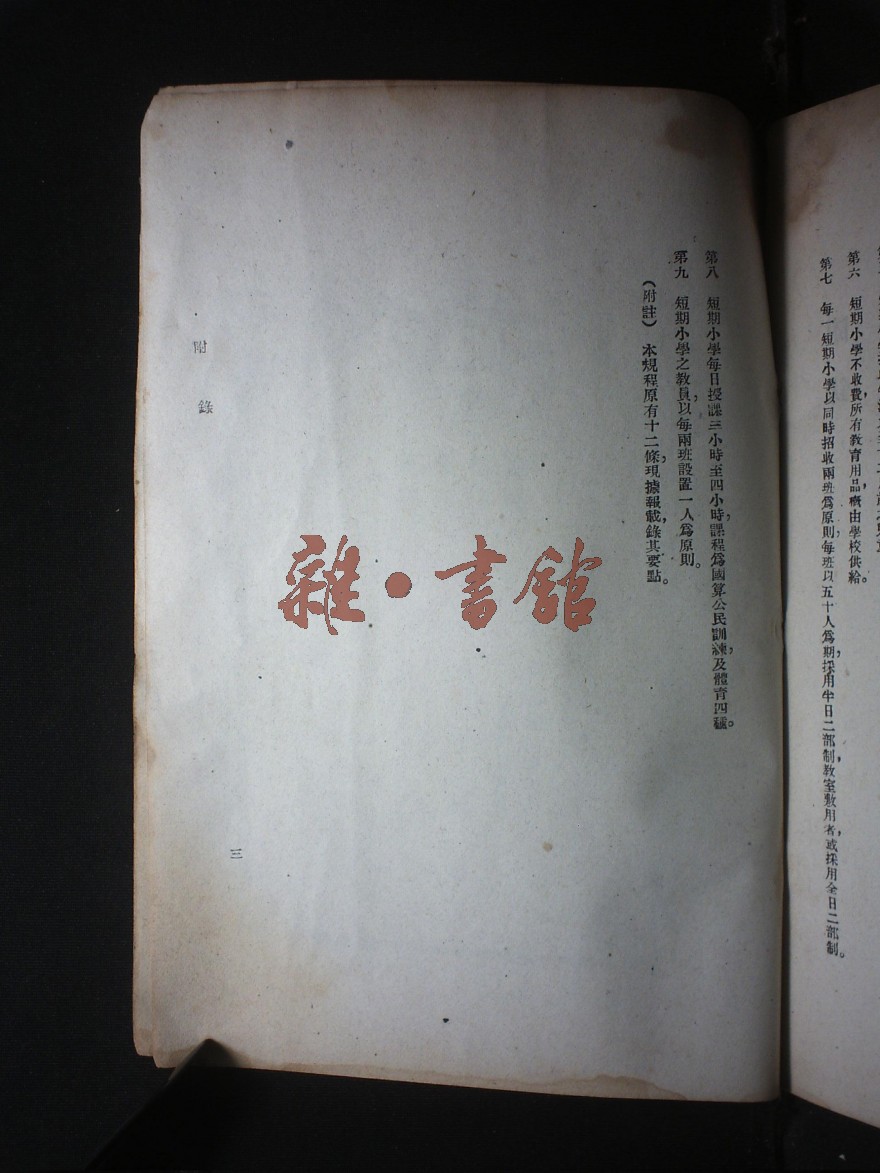 第六　短期小學不收費，所有教育用品，概由學校供給。
第七　每一短期小學以同時招收兩班爲原則，每班以五十人爲期，採用半日二部制，教室敷用者，或採用全日二部制。
第八　短期小學每日授課三小時至四小時，課程爲國算公民訓練，及體育四種。
第九　短期小學之教員，以每兩班設置一人爲原則。
（附註）　本規程原有十二條，現據報載，錄其要點。
附　錄
三
雜·書館